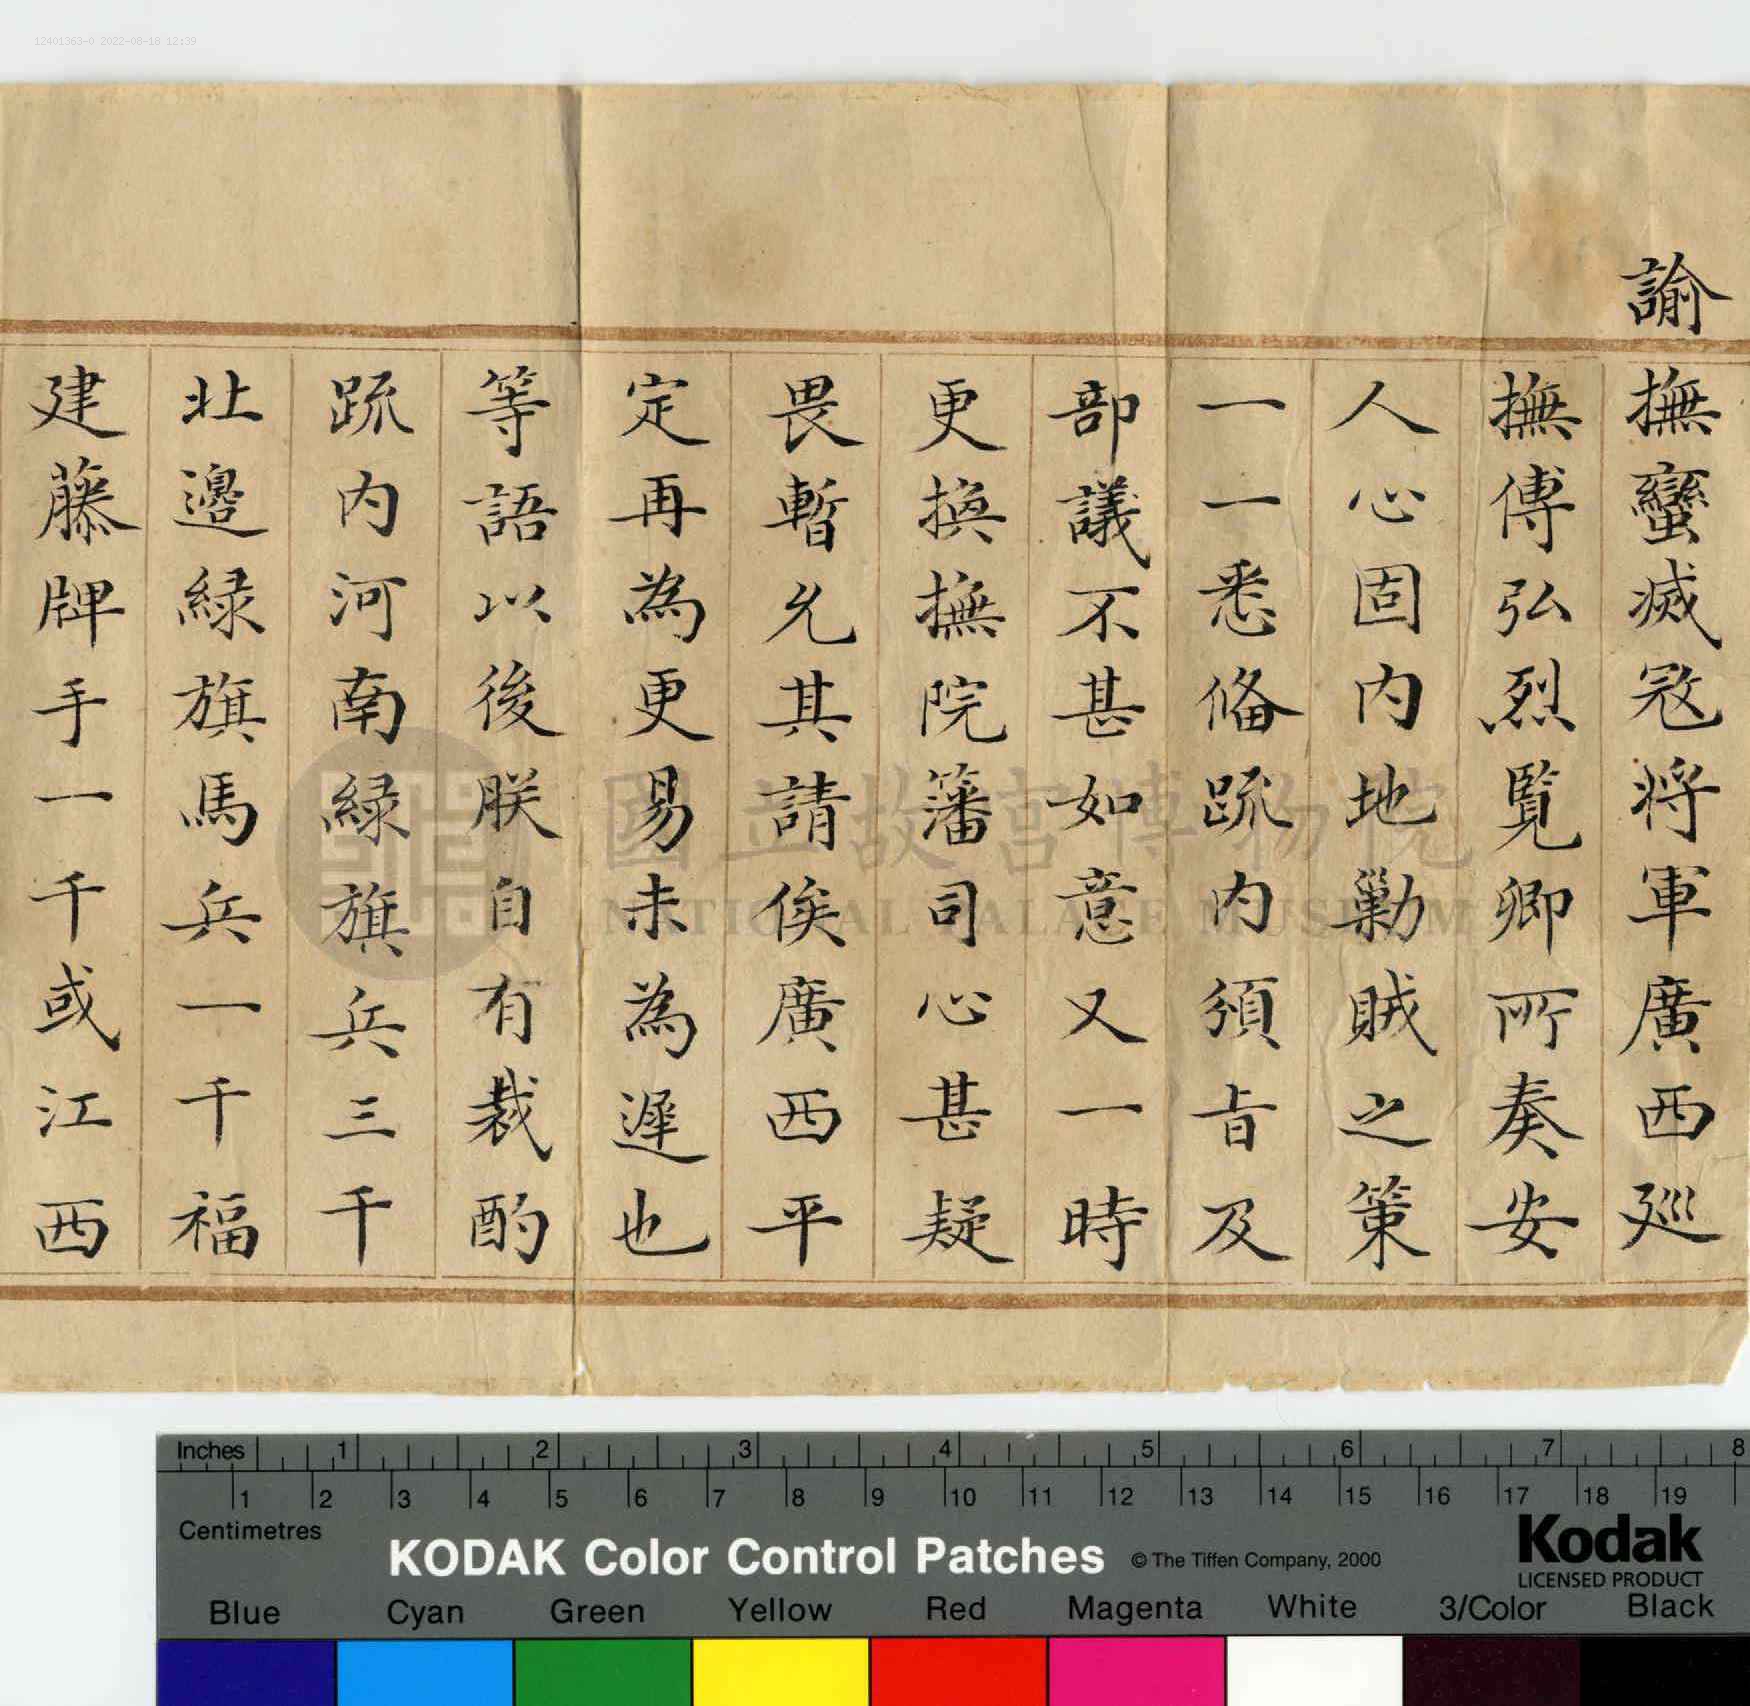 12401363-0 2022-08-18 12:39
諭
撫蠻滅寇將軍廣西廵
撫傅弘烈覽卿所奏安
人心固內地勦賊之策
一一悉俻疏內須旨及
部議不甚如意又一時
更換撫院籓司心甚疑
畏暫允其請俟廣西平
定再為更易未為遲也
等語以後朕自有裁酌
疏內河南緑旗兵三千
北邊緑旗馬兵一千福
建藤牌手一千或江西
國立故宮博物院
NATIONAL PALACE MUSEUM
Inches 1 2 3 4 5 6 7 8
1 2 3 4 5 6 7 8 9 10 11 12 13 14 15 16 17 18 19
Centimetres
KODAK Color Control Patches © The Tiffen Company, 2000
Kodak
LICENSED PRODUCT
Blue Cyan Green Yellow Red Magenta White 3/Color Black